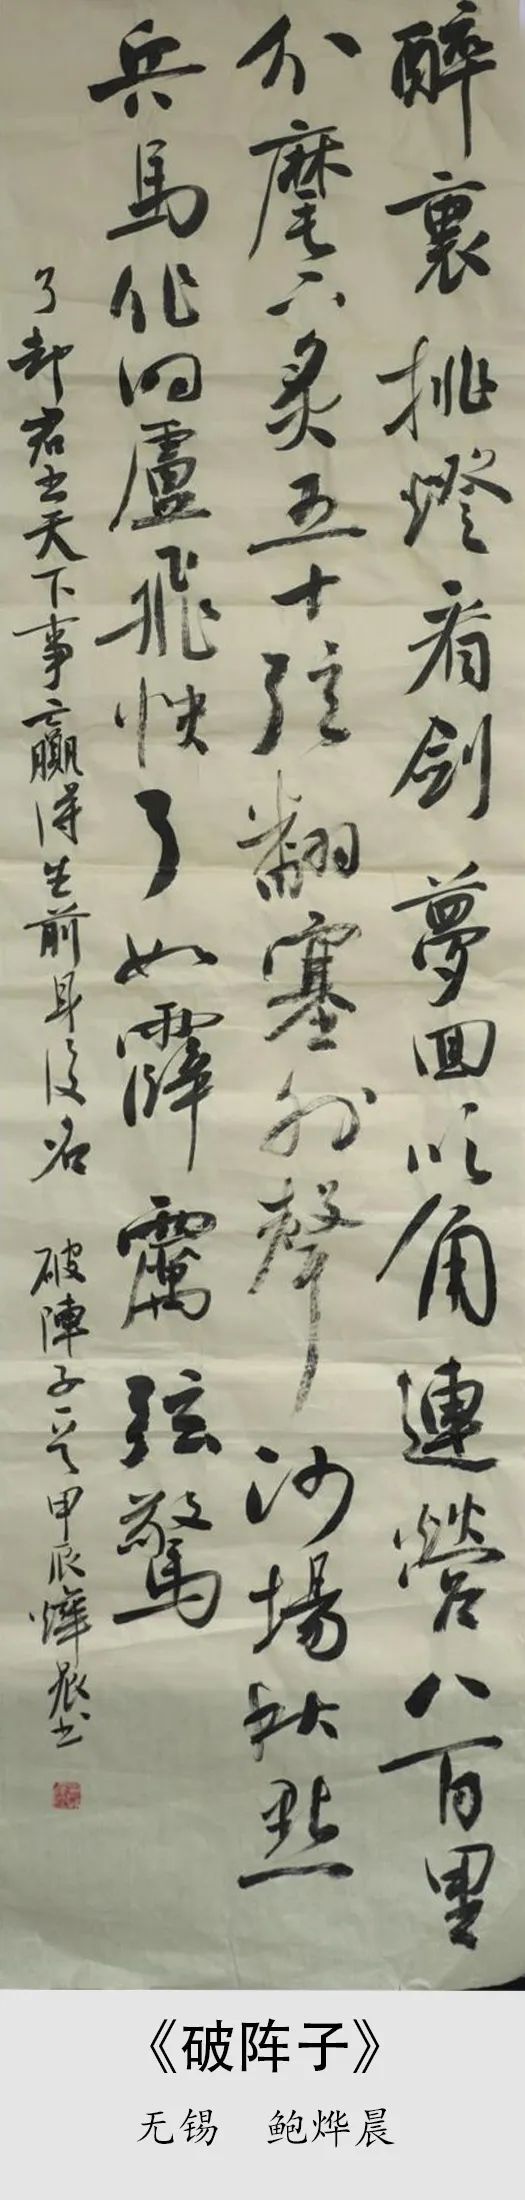 醉裏挑燈看劍夢回吹角連營八百里
分麾下炙五十弦翻塞外聲沙場秋點
兵馬作的盧飛快弓如霹靂弦驚
了却君王天下事贏得生前身後名 破陣子一首 甲辰燁晨書
《破阵子》
无锡 鲍烨晨